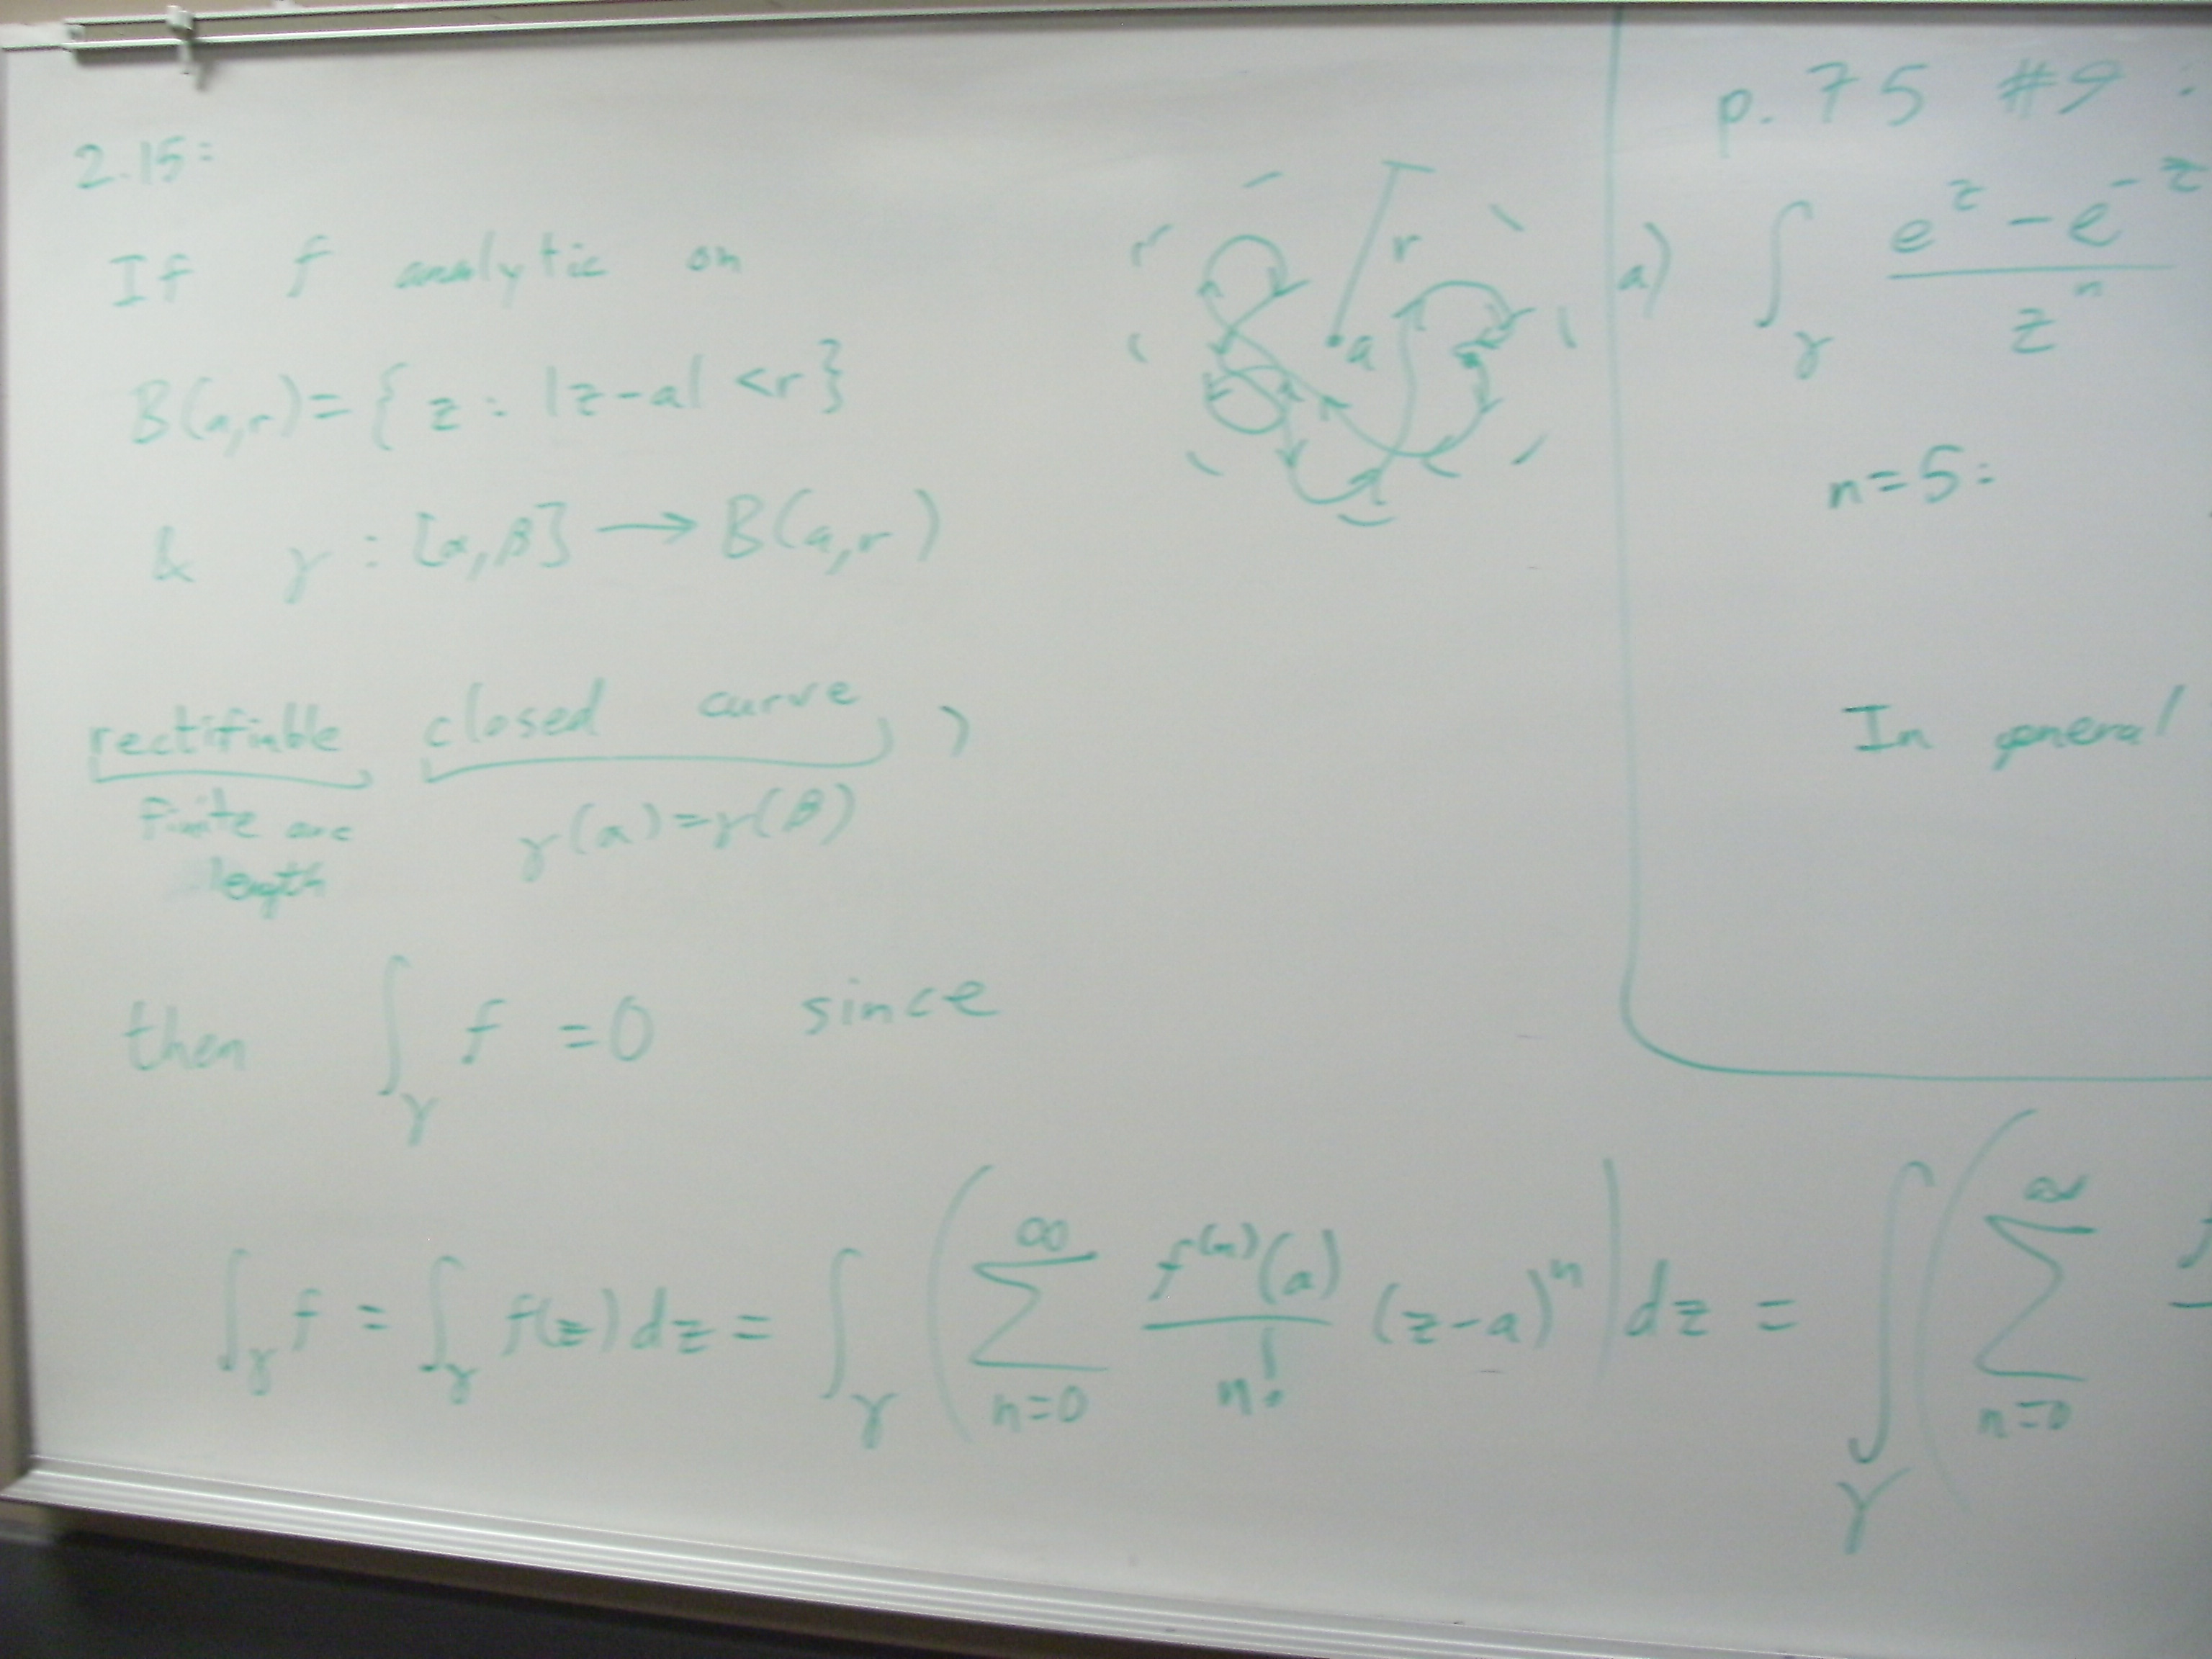 2.15:
If f analytic on
B(a,r) = { z : |z-a| <r }
& γ : [α,β] → B(a,r)
rectifiable closed curve ,
finite arc length
γ(α)=γ(β)
then ∫_γ f = 0 since
∫_γ f = ∫_γ f(z) dz = ∫_γ ( ∑_{n=0}^{∞} f^{(n)}(a) / n! (z-a)^n ) dz = ∫_γ ( ∑_{n=0}^{∞}
r
a
p. 75 #9 :
a) ∫_γ (e^z - e^{-z}) / z^n
n=5:
In general